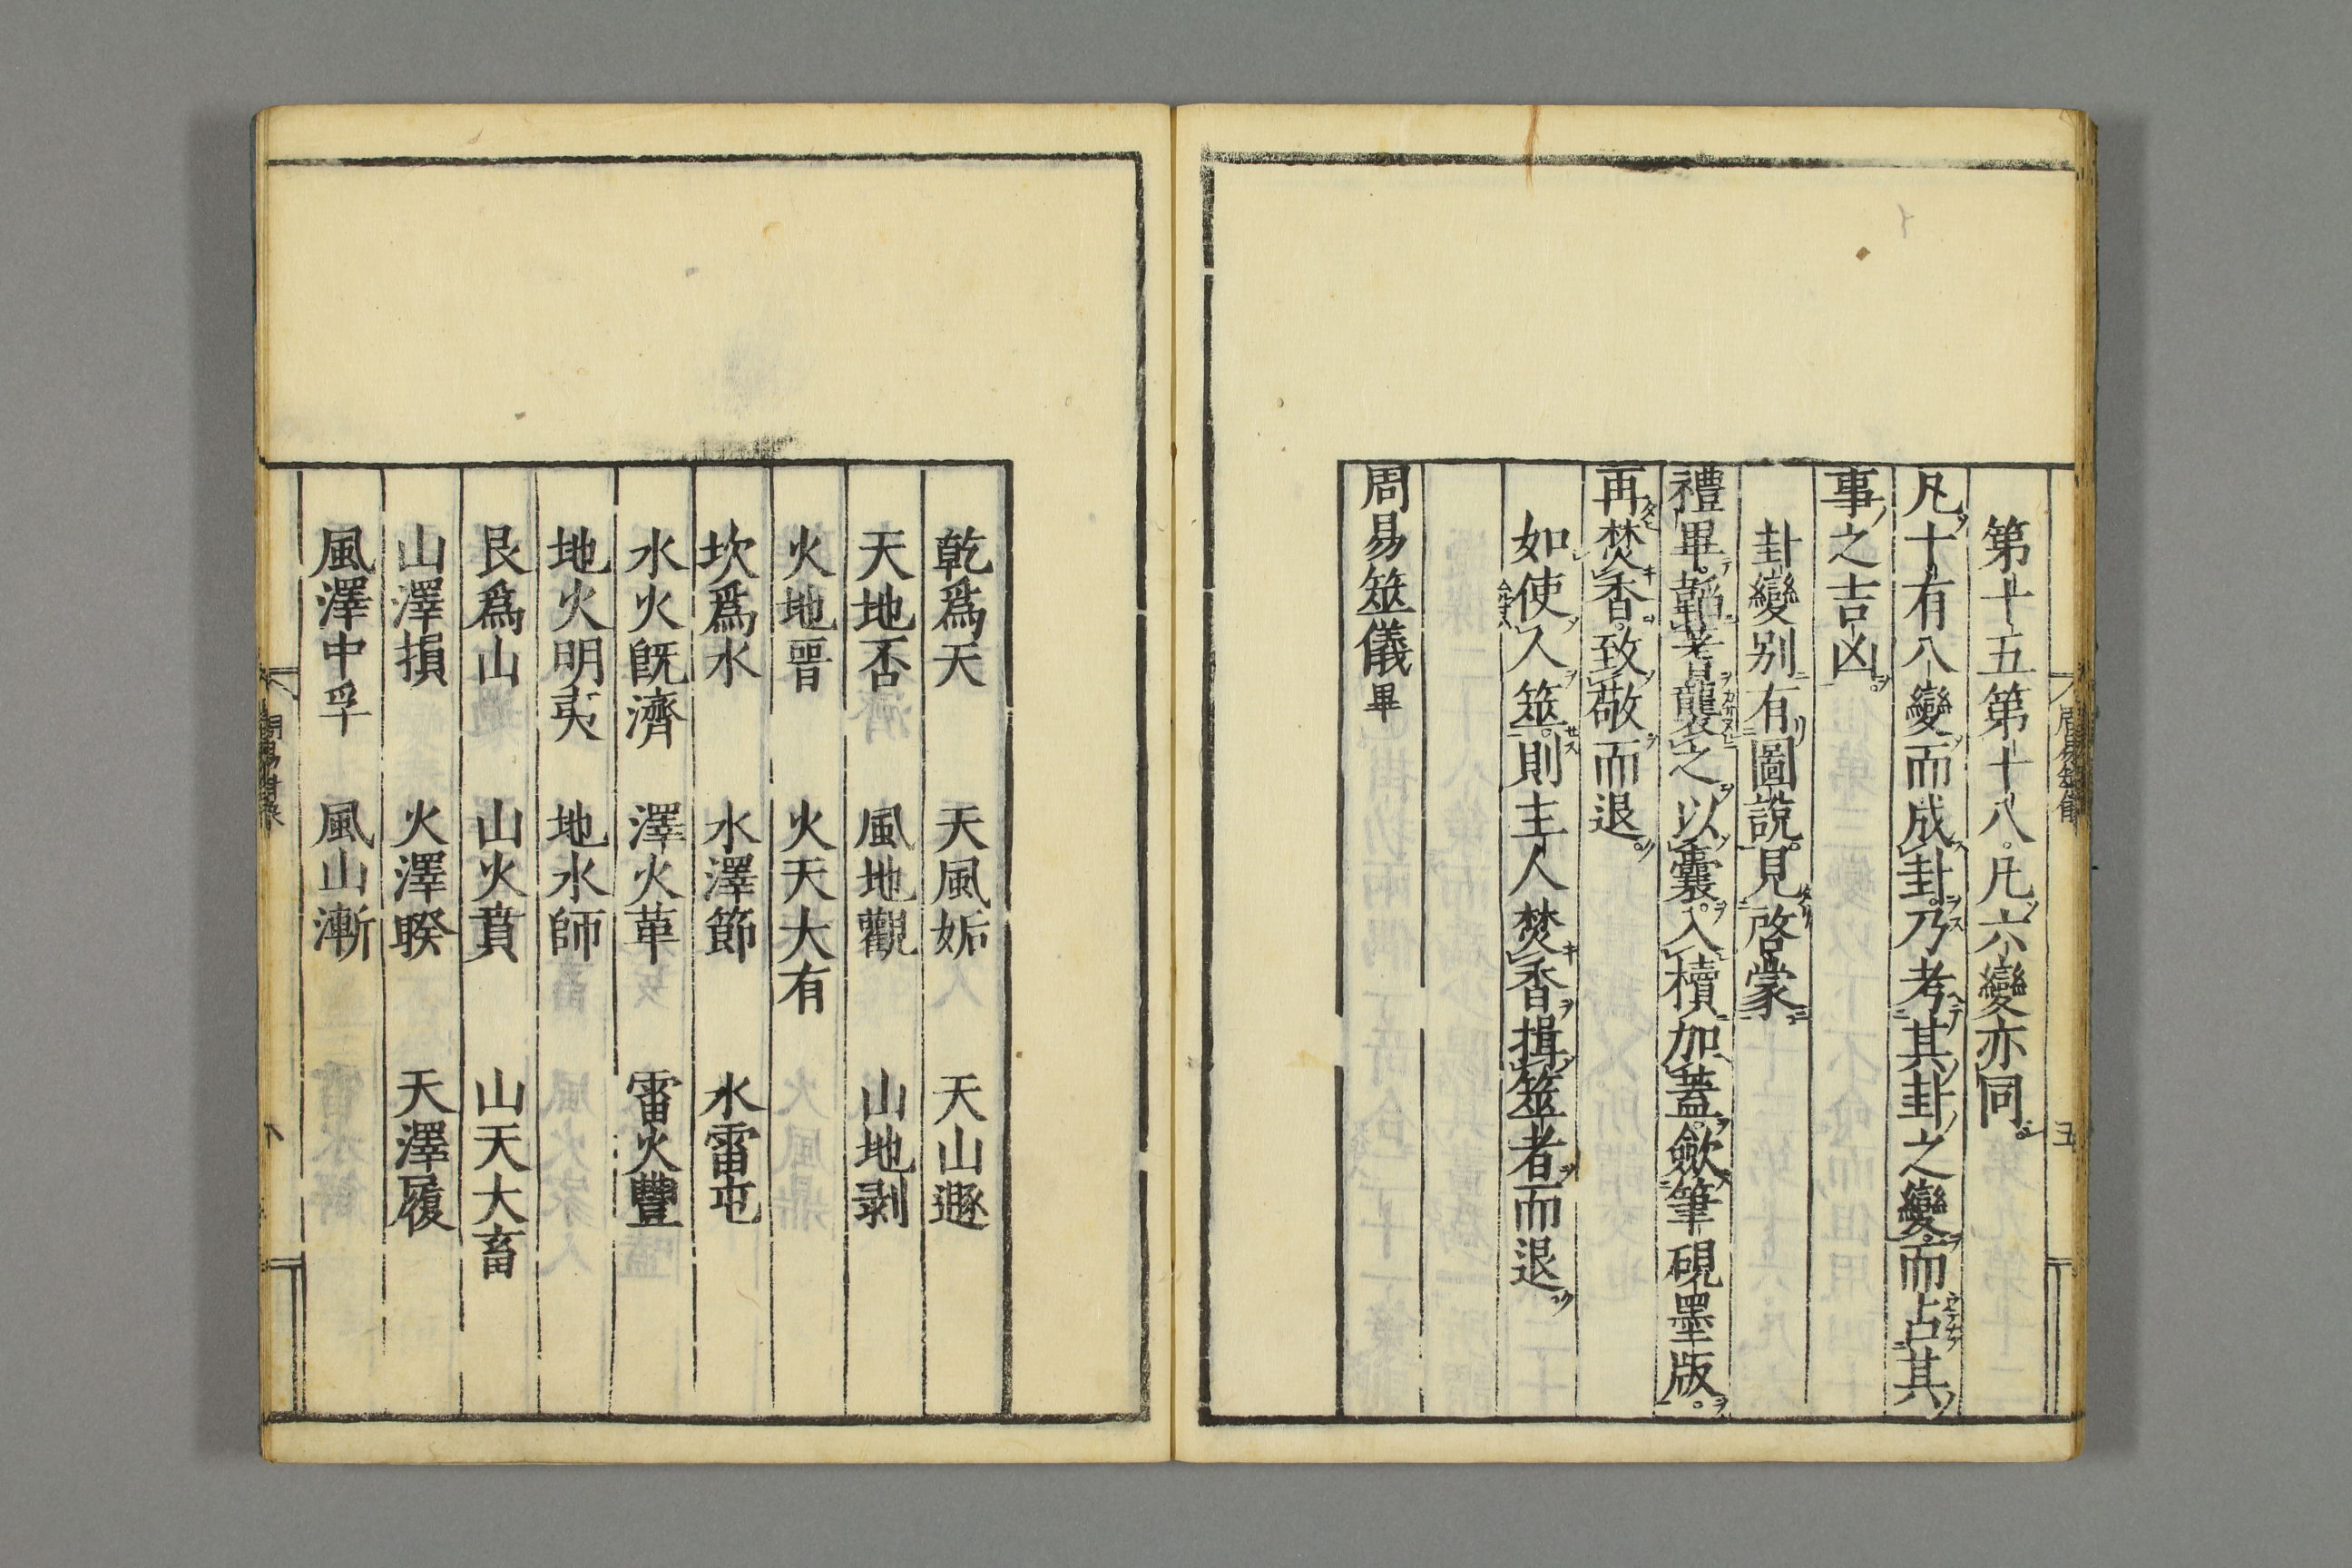 第十五第十八。凡六變亦同。
凡十有八變而成卦。乃考其卦之變。而占其
事之吉凶。
卦變别有圖說。見啓蒙
禮畢。韜蓍襲之以囊。入櫝加蓋。歛筆硯墨版。
再焚香。致敬而退。
如使人筮。則主人焚香。揖筮者而退
周易筮儀畢
乾爲天 天風姤 天山遯
天地否 風地觀 山地剥
火地晋 火天大有
坎爲水 水澤節 水雷屯
水火既濟 澤火革 雷火豐
地火明夷 地水師
艮爲山 山火賁 山天大畜
山澤損 火澤睽 天澤履
風澤中孚 風山漸